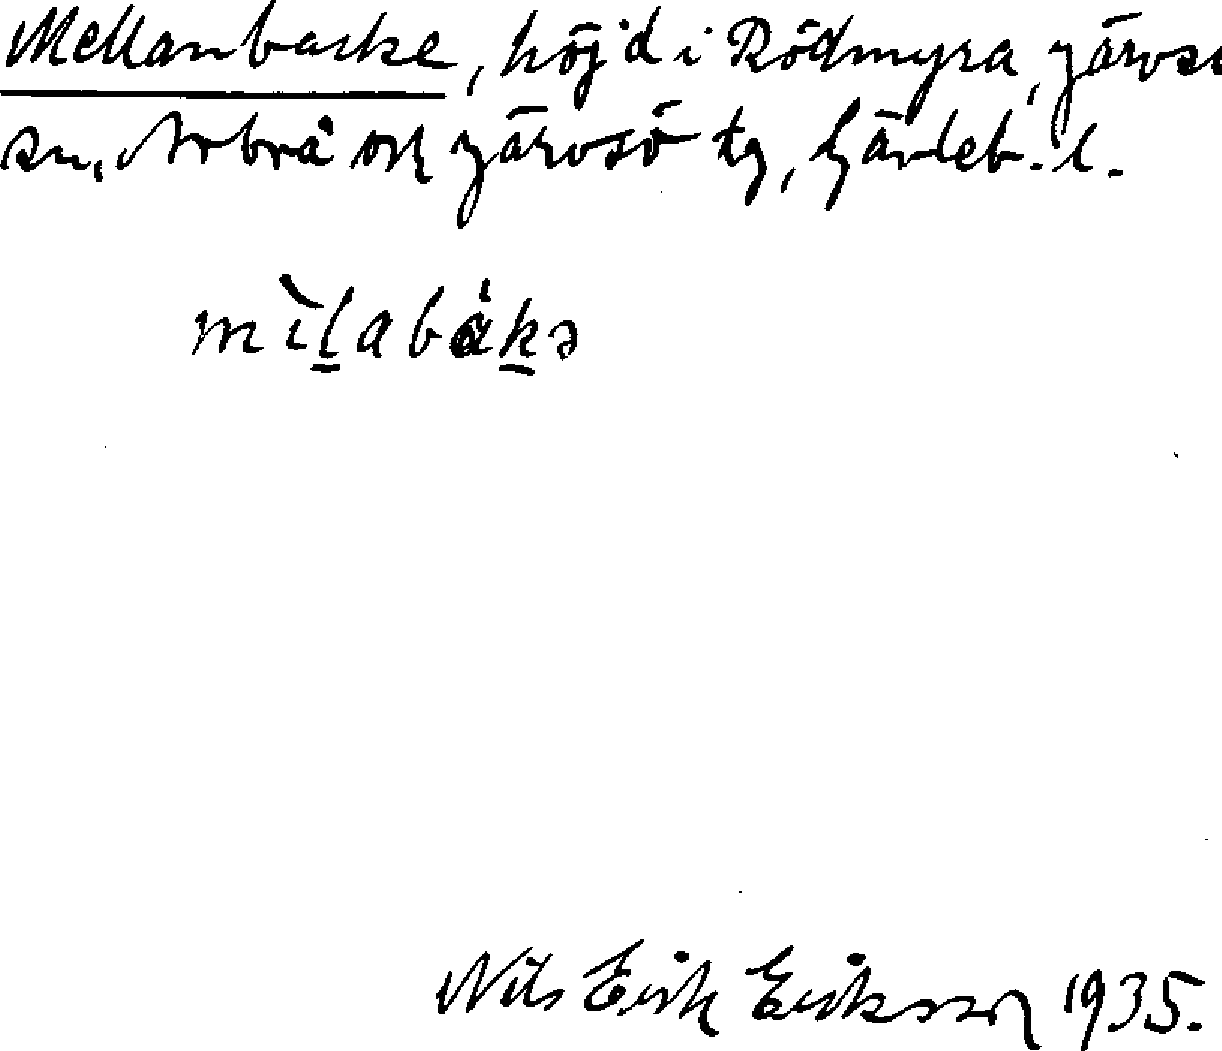 Mellanbacke, höjd i Rödmyra, Järvsö
sn, Arbrå och Järvsö tg, Gävleb. l.
mìl̠abák̠ə
Nils Erik Eriksson 1935.